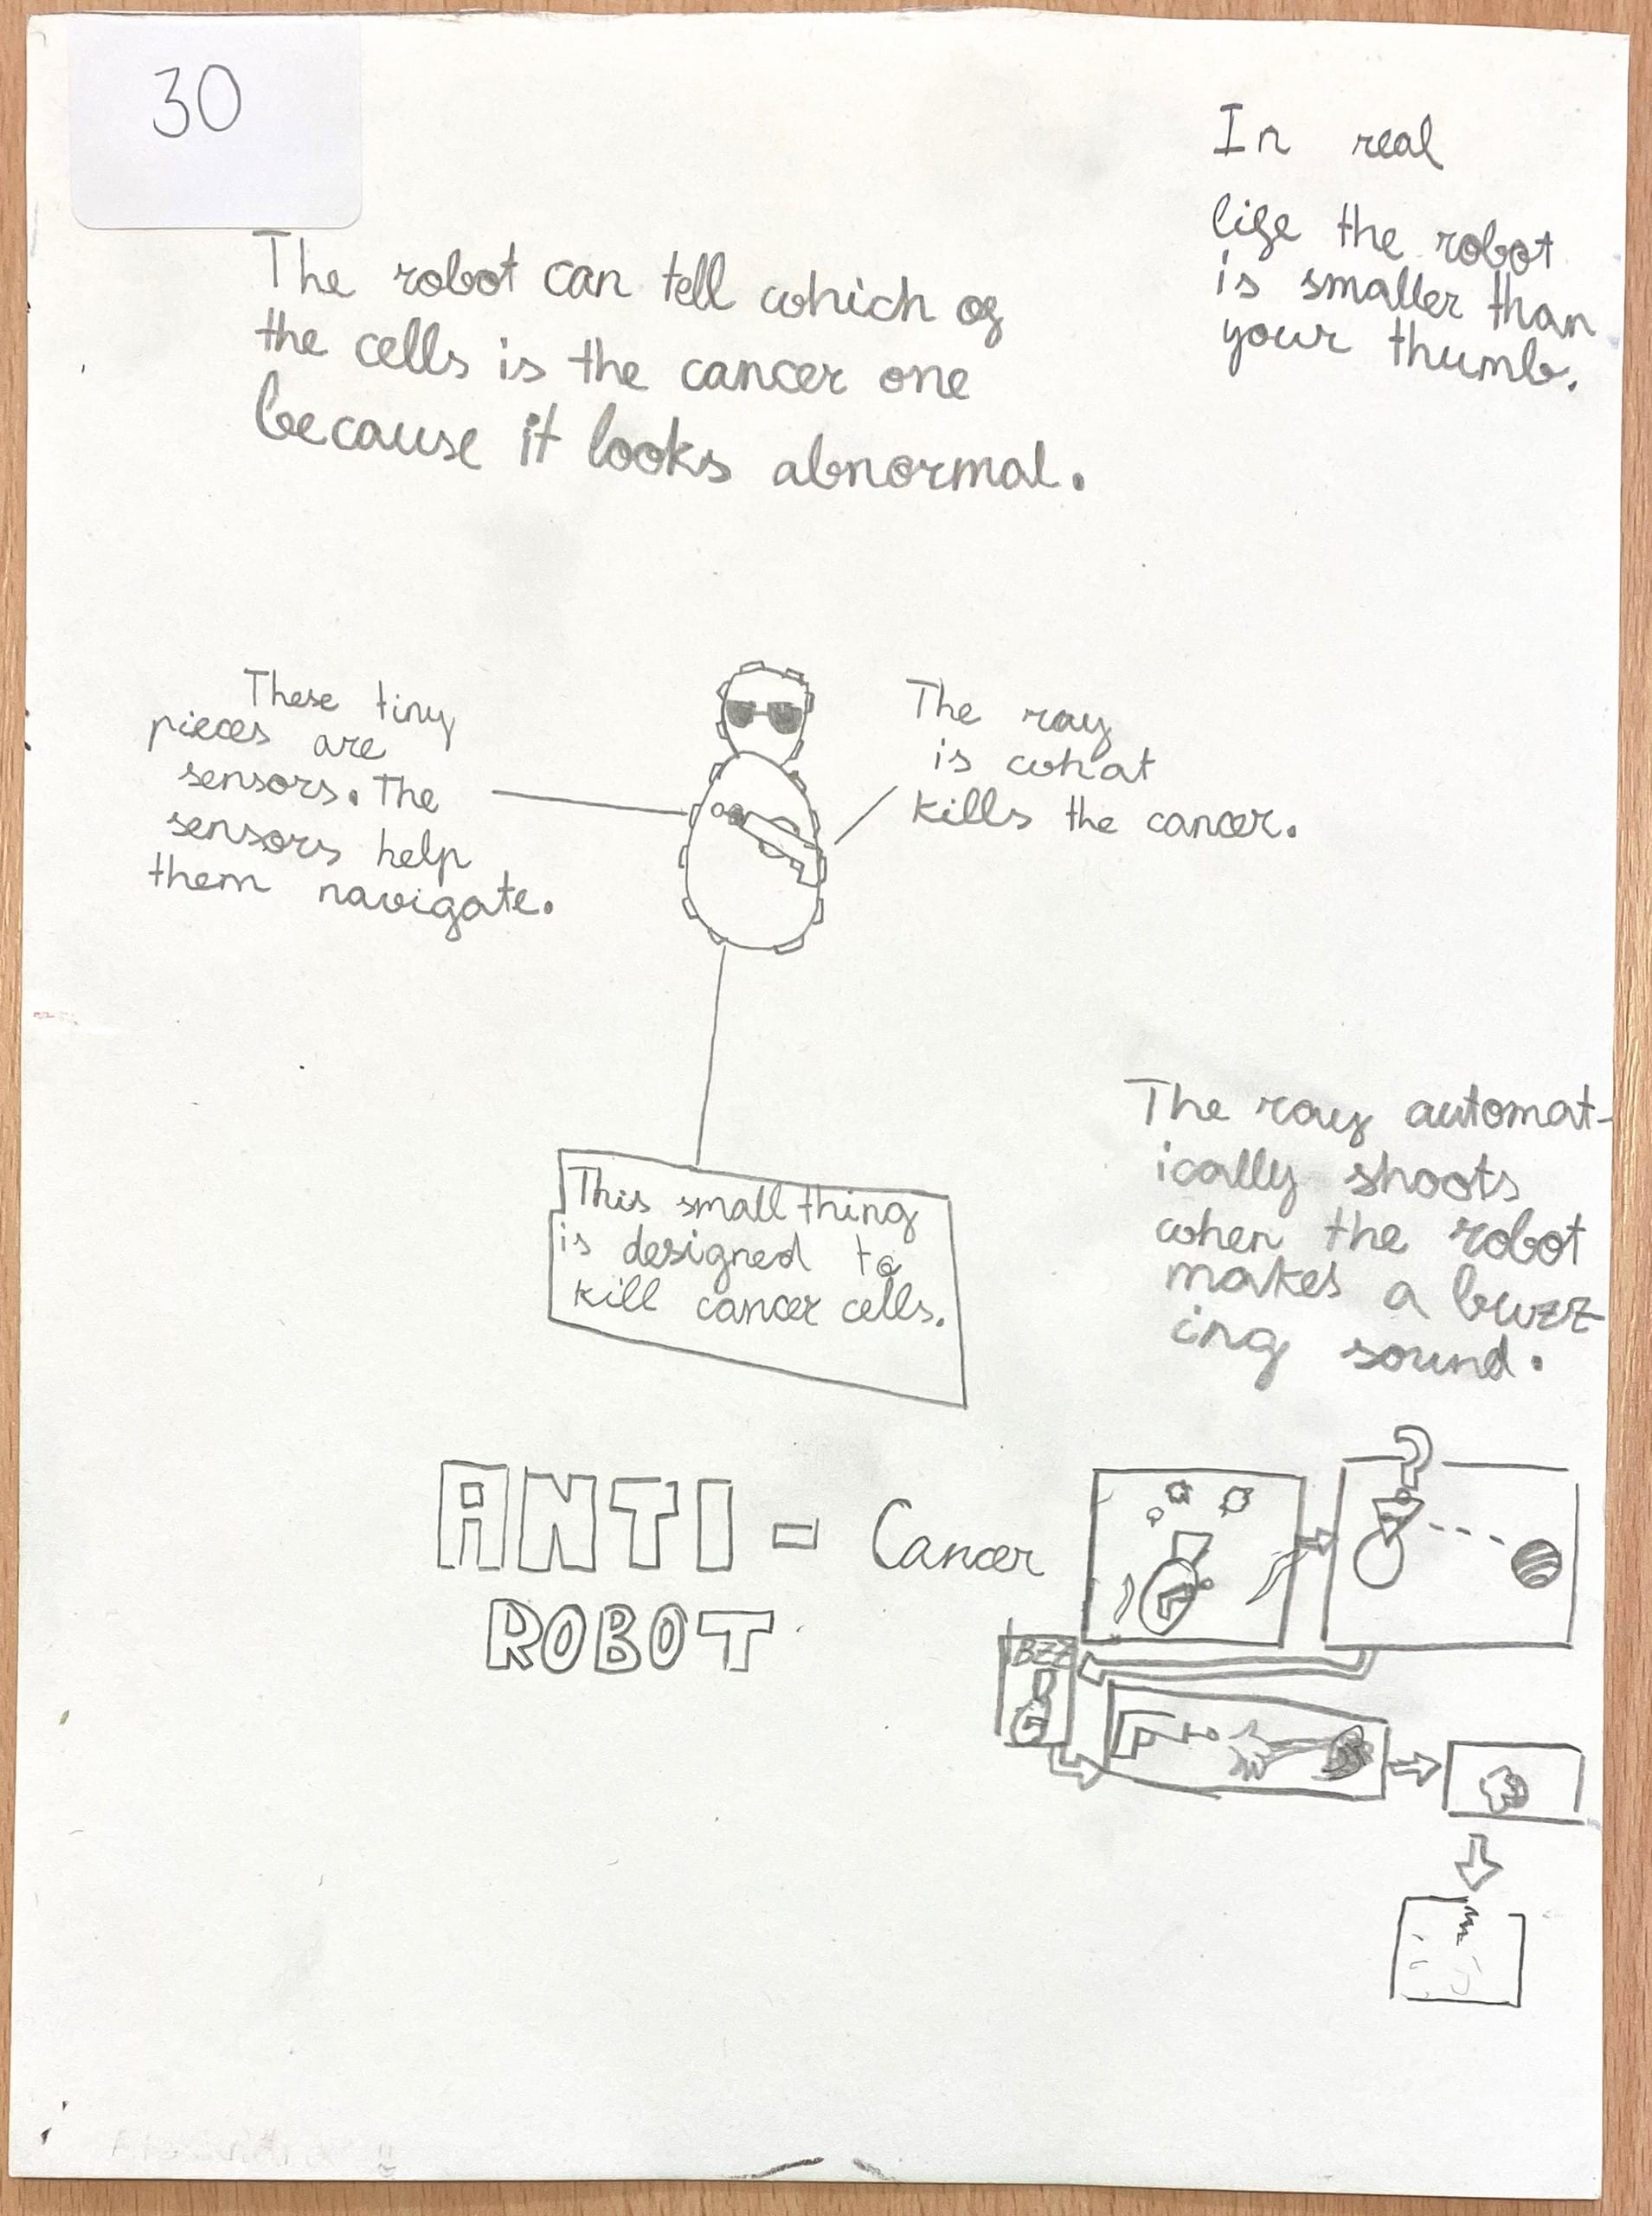 30
In real
life the robot
is smaller than
your thumb.
The robot can tell which of
the cells is the cancer one
because it looks abnormal.
These tiny
pieces are
sensors. The
sensors help
them navigate.
The ray
is what
kills the cancer.
This small thing
is designed to
kill cancer cells.
The ray automat-
ically shoots
when the robot
makes a buzz
ing sound.
ANTI - Cancer
ROBOT
?
BZZ